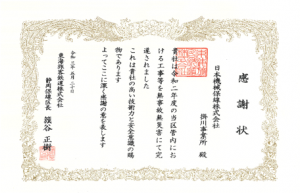 感謝状
日本機械保線株式会社
掛川事業所 殿
貴社は令和二年度の当区管内にお
ける工事等を無事故無災害にて完
遂されました
これは貴社の高い技術力と安全意識の賜
物であります
よってここに深く感謝の意を表します
令和三年
東海旅客鉄道株式会社
静岡保線区長
正樹